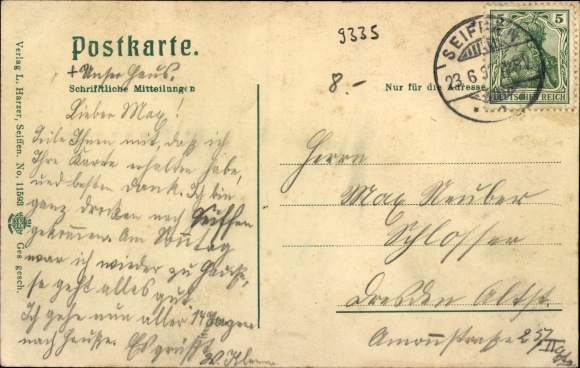 9335
Postkarte.
+ Unser Haus.
8.-
Nur für die Adresse
Schriftliche Mitteilungen
SEIFFEN
23.6.
5
5
DEUTSCHES REICH
Lieber Max!
Teile Ihnen mit, daß ich
Ihre Karte erhalten habe,
und besten Dank. Ich bin
ganz trocken nach Seiffen
gekommen. Am Sonntag
war ich wieder zu Hause,
es geht alles gut.
Ich gehe nun aller 14 Tagen
nach Hause. Es grüßt
Herrn
Max Neuber
Schlosser
Dresden Altst.
Amonstraße 25
Verlag L. Harzer, Seiffen. No. 11593
Ges. gesch.